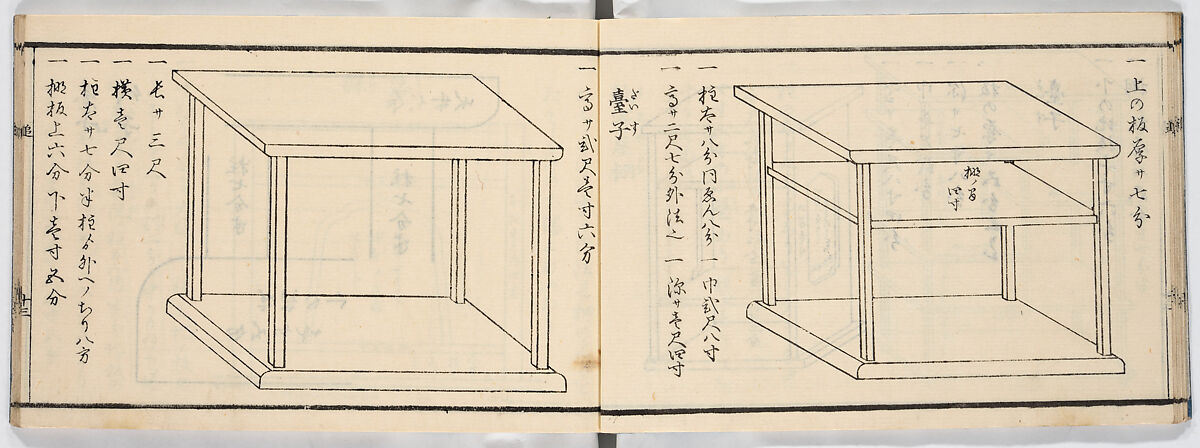 一 上の板厚サ七分
棚ノ高
四寸
一 柱太サ八分内ゑん八分 一 巾弐尺八寸
一 高サ二尺七分外法之 一 深サ壱尺四寸
臺子
だいす
一 高サ弐尺壱寸六分
一 長サ三尺
一 横壱尺四寸
一 柱太サ七分半柱ゟ外ヘノちり八分
一 棚板上六分下壱寸五分
十三